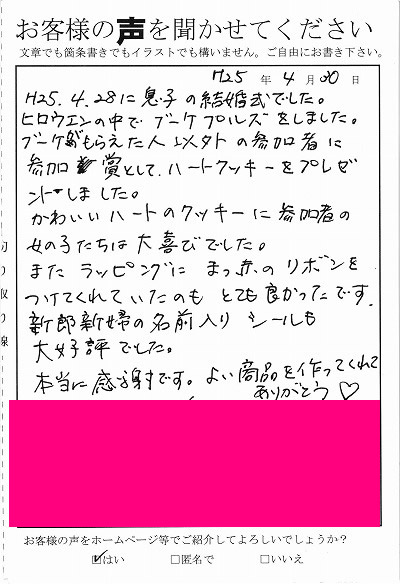 お客様の声を聞かせてください
文章でも箇条書きでもイラストでも構いません。ご自由にお書き下さい。
H25 年 4 月 30 日
H25.4.28に息子の結婚式でした。
ヒロウエンの中でブーケプルズをしました。
ブーケがもらえた人以外の参加者に
参加賞として、ハートクッキーをプレゼ
ントしました。
かわいいハートのクッキーに参加者の
女の子たちは大喜びでした。
またラッピングにまっ赤のリボンを
つけてくれていたのもとても良かったです.
新郎新婦の名前入りシールも
大好評でした。
本当に感謝です。よい商品を作ってくれて
ありがとう♡
切り取り線
お客様の声をホームページ等でご紹介してよろしいでしょうか?
☑はい □匿名で □いいえ